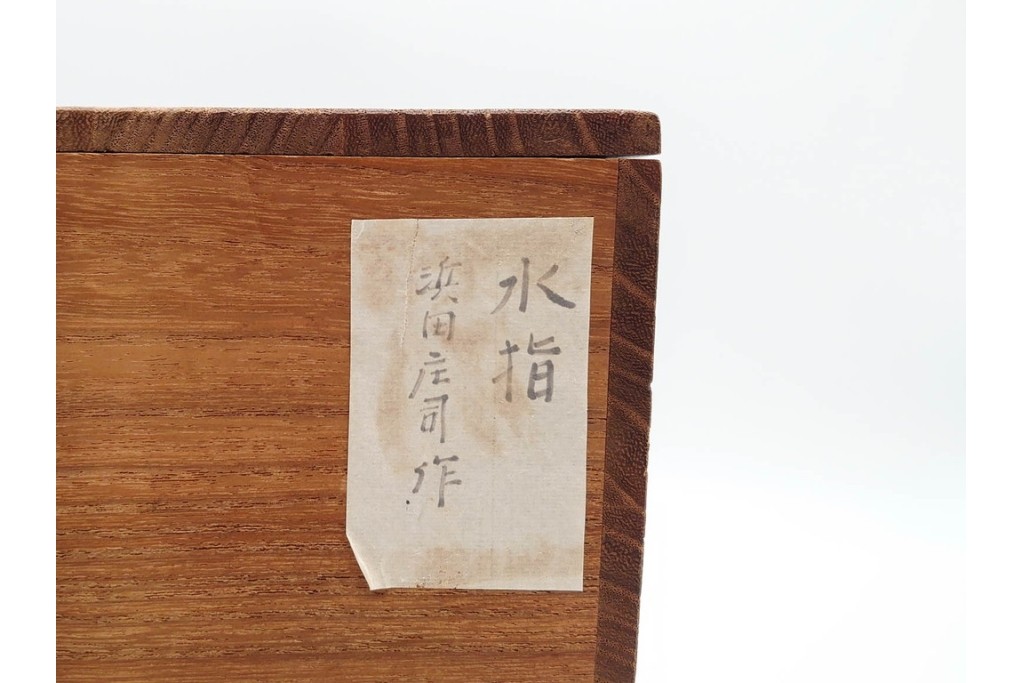 水指
浜田庄司作